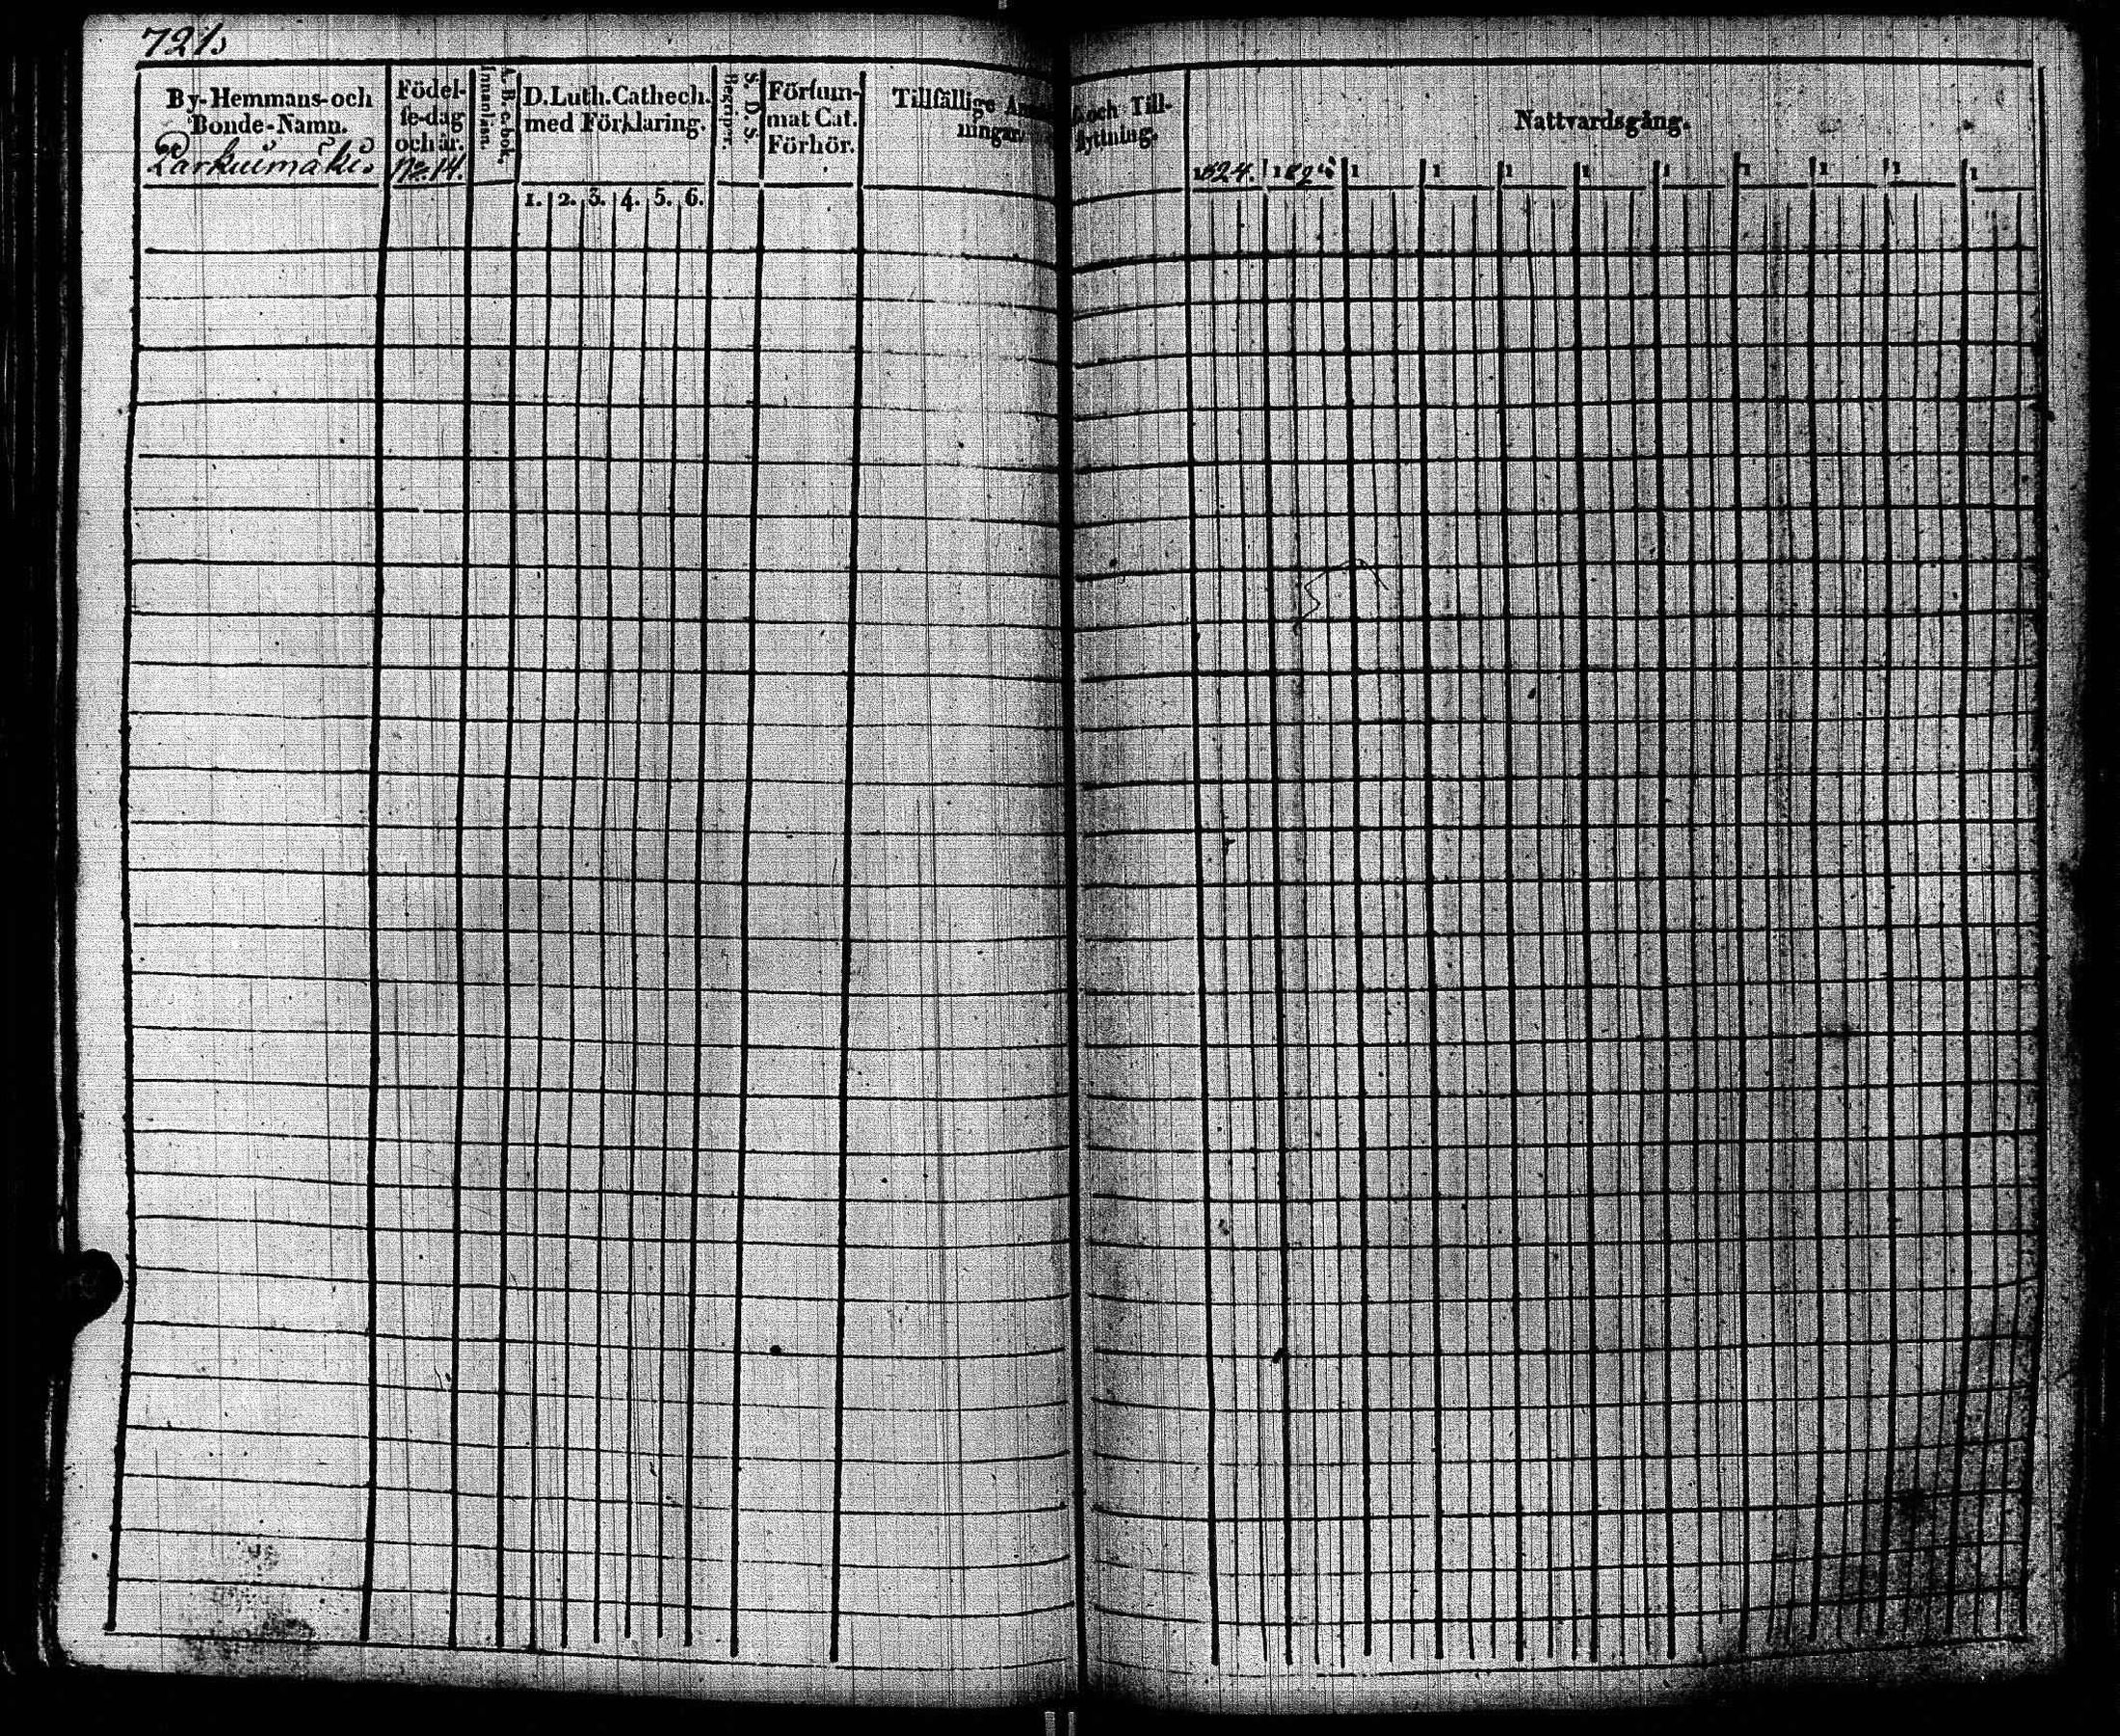 721,
By-Hemmans-och
Bonde-Namn.
Parkuimäki.
Födel-
se-dag
och är.
No. 14.
A. B. c-bok,
Innanläsn.
D. Luth. Cathech.
med Förklaring.
1. 2. 3. 4. 5. 6.
S. D. S.
Begriper.
Försum-
mat Cat.
Förhör.
Tillfällige
ningar.
och Till-
flyttning.
Nattvardsgång.
1824. 182 1 1 1 1 1 1 1 1 1